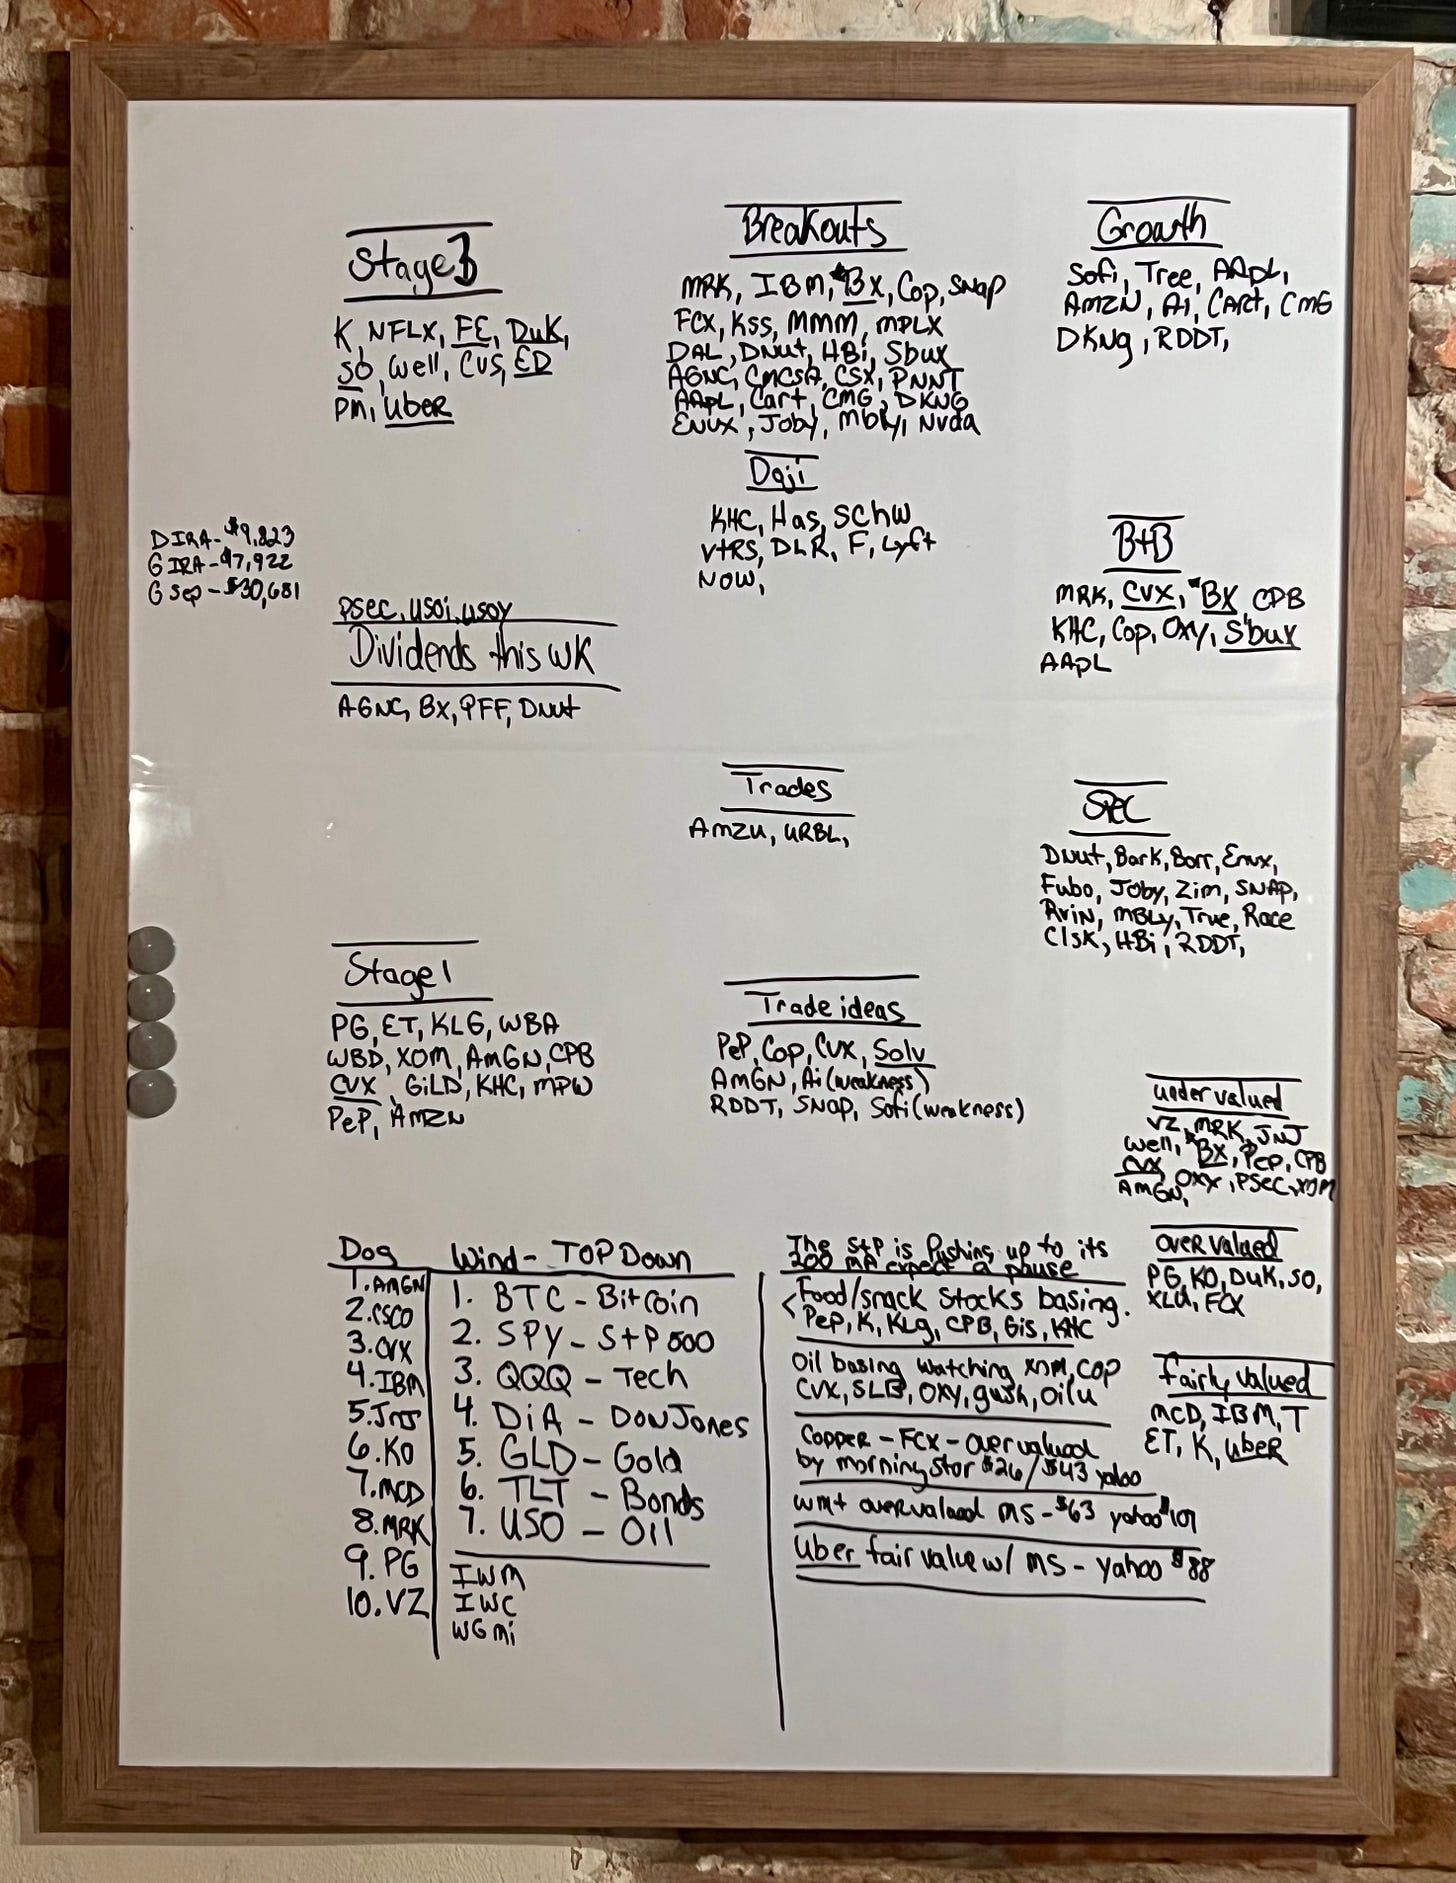 Stage 3
K, NFLX, FE, DUK,
SO, Well, CVS, ED
PM, UBER
DIRA - $9,823
GIRA - $7,922
G Sep - $30,681
PSEC, USOi, USOY
Dividends this WK
AGNC, BX, PFF, DNUT
Stage 1
PG, ET, KLG, WBA
WBD, XOM, AMGN, CPB
CVX, GILD, KHC, MPW
PEP, AMZN
Breakouts
MRK, IBM, *BX, COP, SNAP
FCX, KSS, MMM, MPLX
DAL, DNUT, HBi, Sbux
AGNC, CMCSA, CSX, PNNT
AAPL, Cart, CMG, DKNG
ENVX, Joby, Mbly, Nvda
Doji
KHC, Has, SCHW
VTRS, DLR, F, Lyft
NOW,
Trades
AMZU, URBL,
Trade ideas
PEP, COP, CVX, Solv
AMGN, Ai (weakness)
RDDT, SNAP, Sofi (weakness)
Growth
Sofi, Tree, AAPL,
AMZN, Ai, CART, CMG
DKNG, RDDT,
B+B
MRK, CVX, *BX, CPB
KHC, COP, OXY, Sbux
AAPL
SPEC
DNUT, Bark, Borr, Envx,
Fubo, JOby, Zim, SNAP,
Rvin, MBLY, True, Race
Clsk, HBi, RDDT,
undervalued
VZ, MRK, JNJ
Well, *BX, PEP, CPB
CVX, OXY, PSEC, XOM
AMGN,
overvalued
PG, KO, DUK, SO,
XLU, FCX
fairly valued
MCD, IBM, T
ET, K, UBER
Dog
1. AMGN
2. CSCO
3. CVX
4. IBM
5. JNJ
6. KO
7. MCD
8. MRK
9. PG
10. VZ
Wind - TOP Down
1. BTC - Bitcoin
2. SPY - S+P 500
3. QQQ - Tech
4. DiA - DOW JONES
5. GLD - Gold
6. TLT - Bonds
7. USO - Oil
IWM
IWC
WGMi
The S+P is Pushing up to its
200 MA expect a pause
Food/snack Stocks basing.
< PEP, K, KLG, CPB, Gis, KHC
Oil basing watching XOM, COP
CVX, SLB, OXY, gush, Oilu
COPPER - FCX - overvalued
by morningstar $26/$43 yahoo
WMT overvalued MS - $63 yahoo $101
Uber fair value w/ MS - yahoo $88